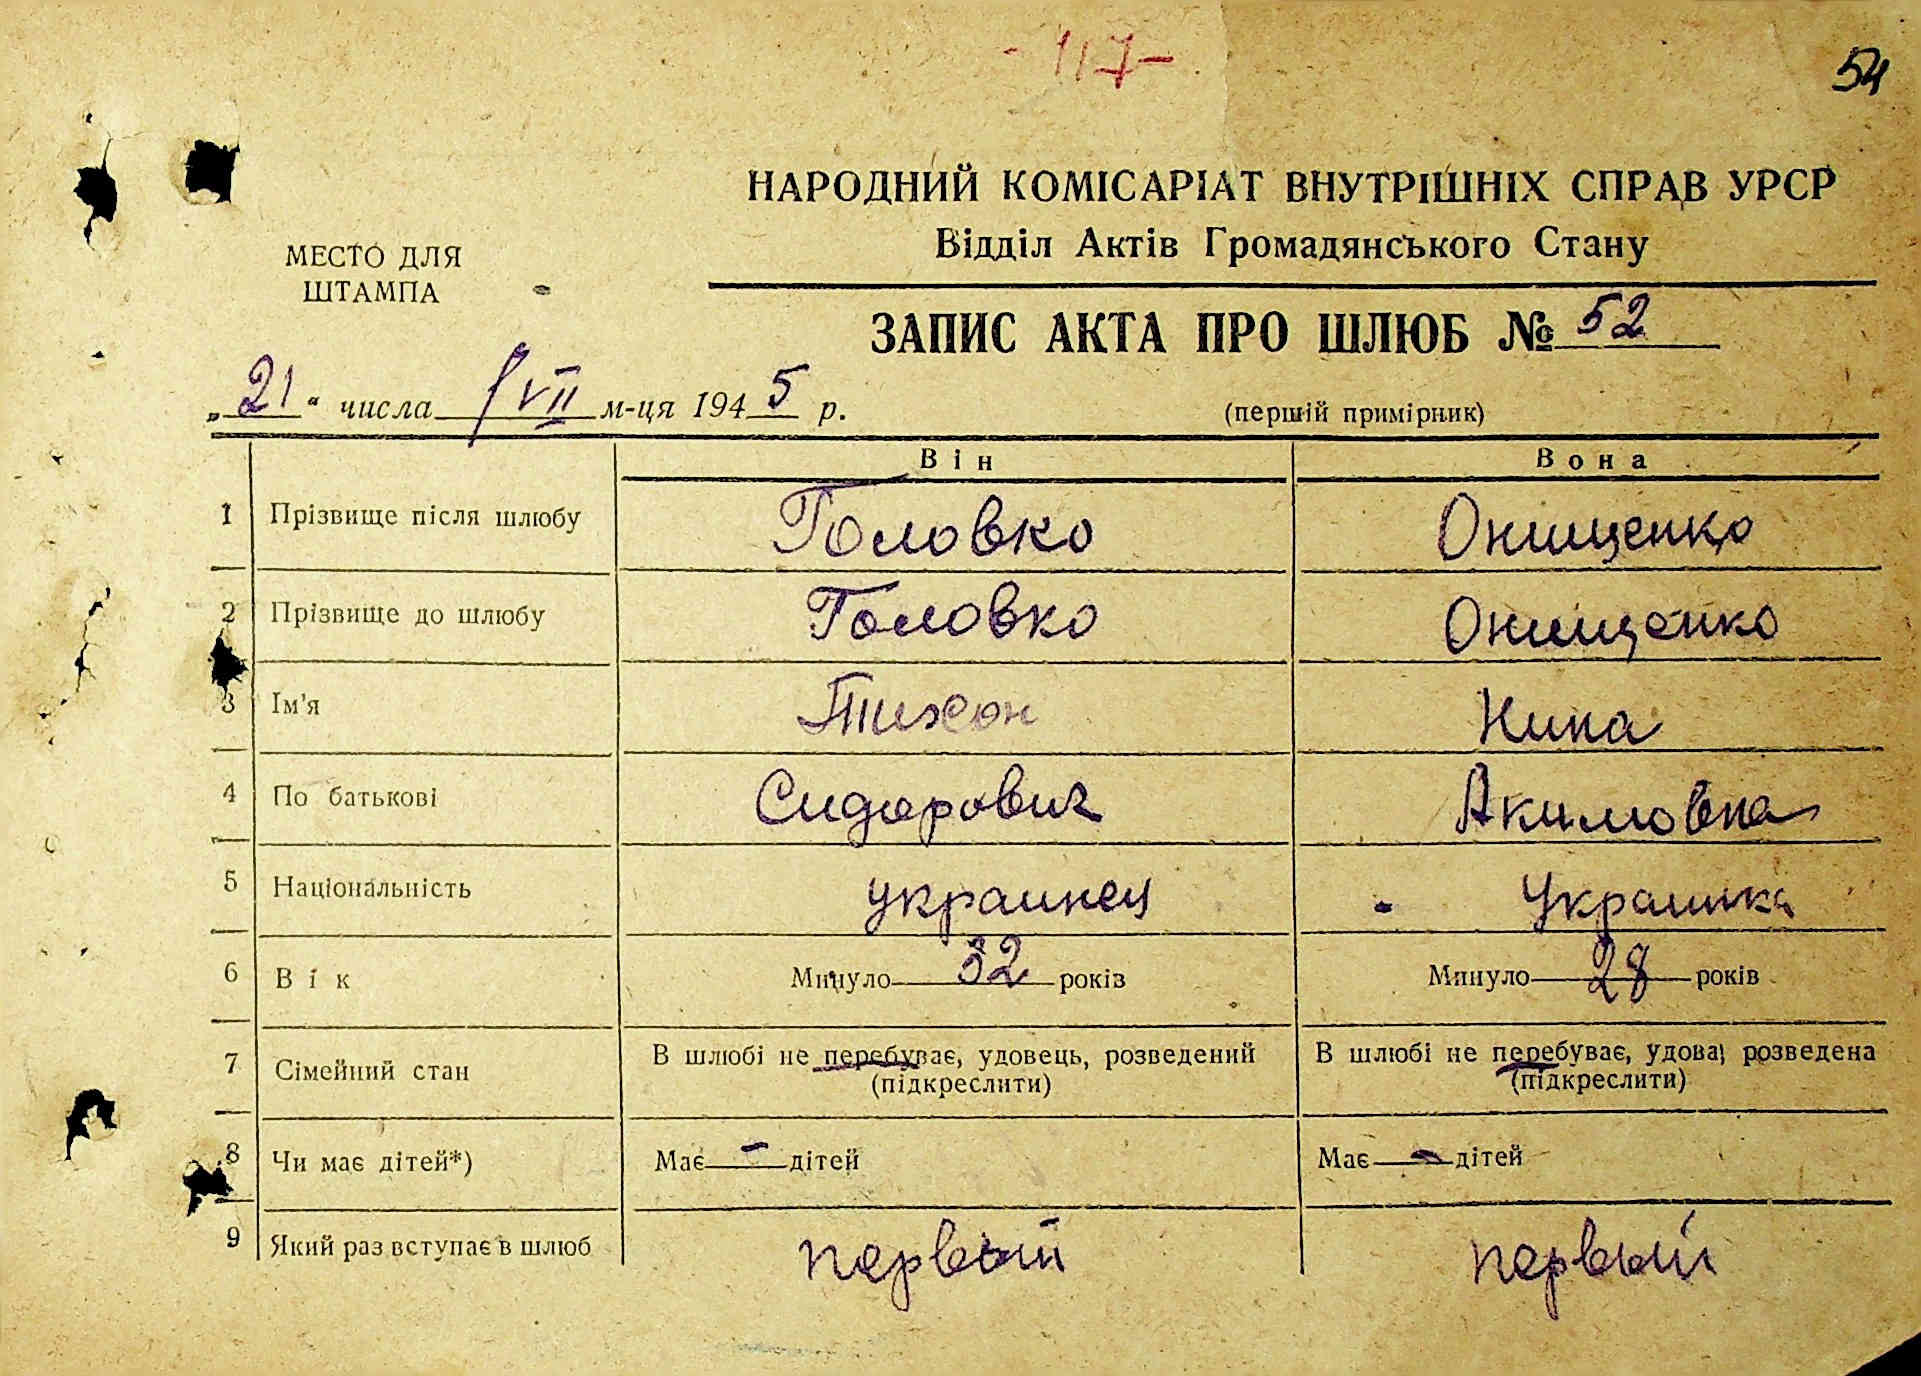 - 117 -
54
НАРОДНИЙ КОМІСАРІАТ ВНУТРІШНІХ СПРАВ УРСР
Відділ Актів Громадянського Стану
МЕСТО ДЛЯ
ШТАМПА
ЗАПИС АКТА ПРО ШЛЮБ № 52
„21“ числа VII м-ця 1945 р.
(перший примірник)
Він Вона
1 Прізвище після шлюбу Головко Онищенко
2 Прізвище до шлюбу Головко Онищенко
3 Ім'я Тихон Нина
4 По батькові Сидорович Акимовна
5 Національність украинец - Украинка
6 Вік Минуло 32 років Минуло 28 років
7 Сімейний стан В шлюбі не перебуває, удовець, розведений В шлюбі не перебуває, удова, розведена
(підкреслити) (підкреслити)
8 Чи має дітей*) Має - дітей Має - дітей
9 Який раз вступає в шлюб первый первый